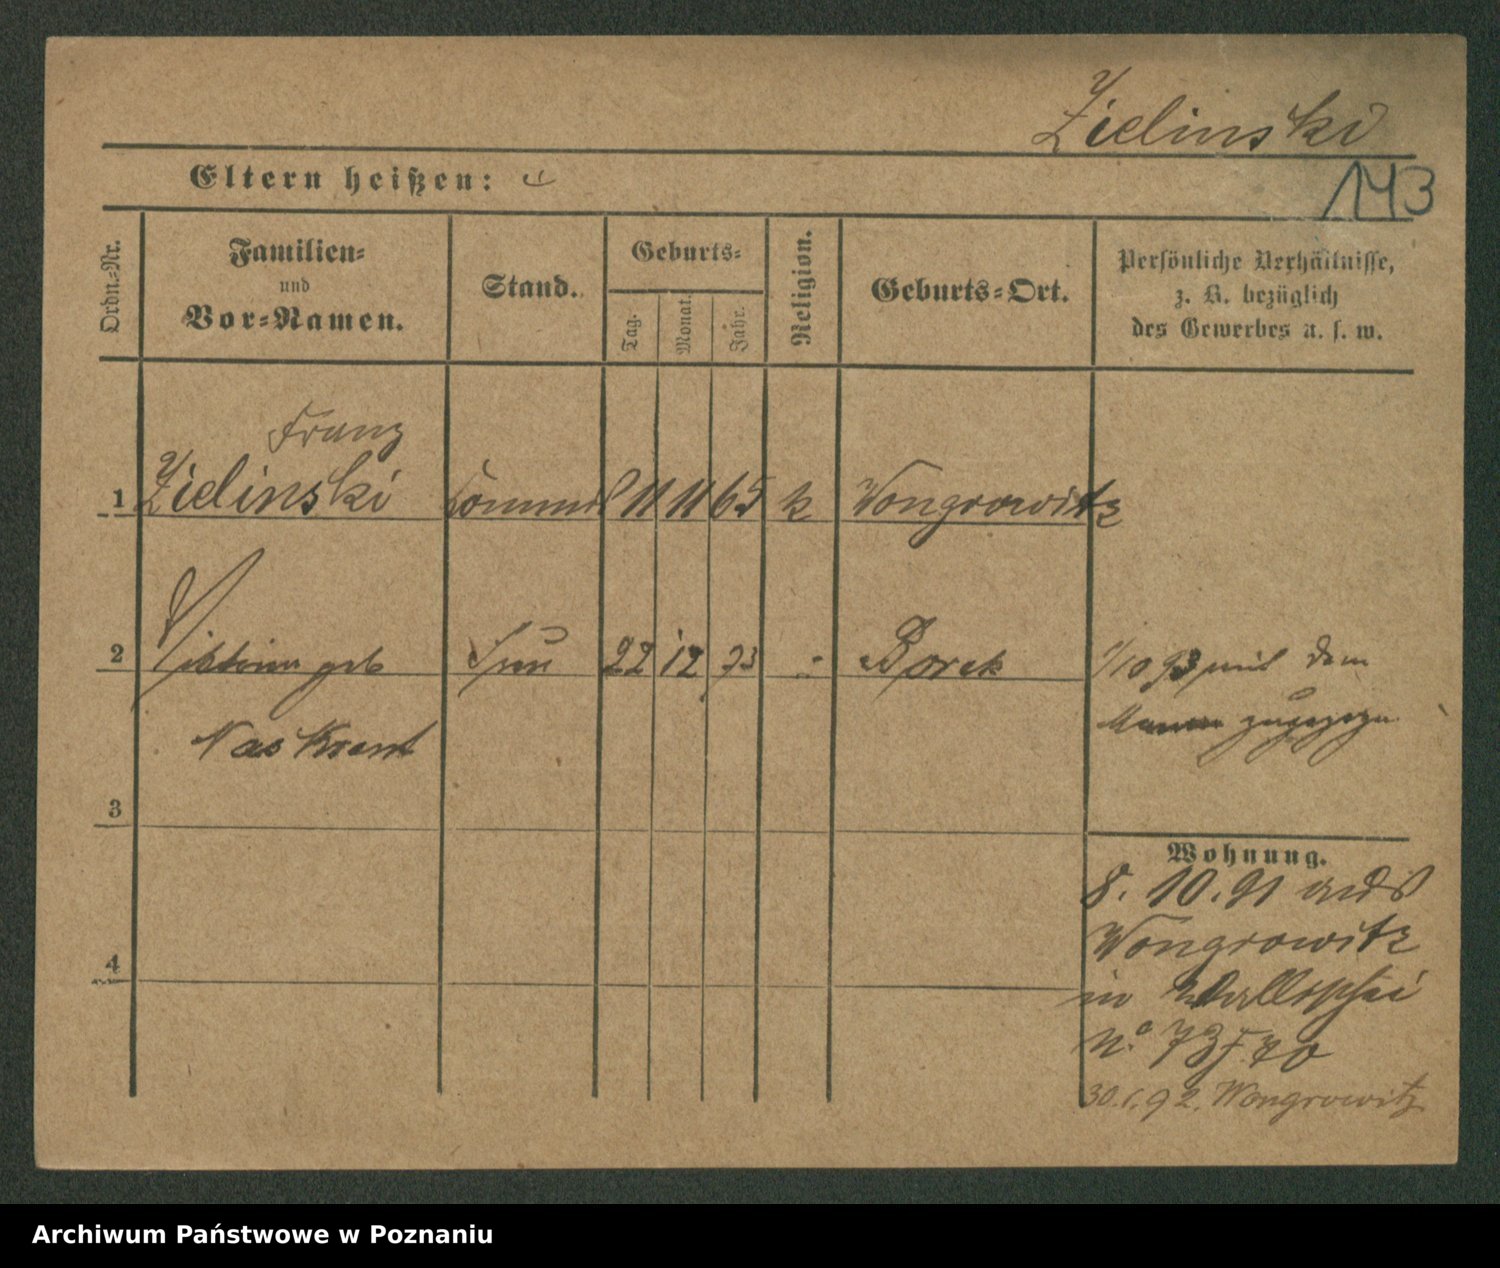 Zielinski
Eltern heißen:
143
Ordn.-Nr.
Familien-
und
Vor-Namen.
Stand.
Geburts-
Tag.
Monat.
Jahr.
Religion.
Geburts-Ort.
Persönliche Verhältnisse,
z. B. bezüglich
des Gewerbes u. s. w.
Franz
1 Zielinski Commis 11 11 65 k Wongrowitz
2 Viktoria geb Frau 22 12 73 - Borek 1/10 93 mit dem
Manne zugezogen
Naskrent
3
Wohnung.
8. 10. 91 aus
Wongrowitz
4
in
No 73
30.1.92. Wongrowitz
Archiwum Państwowe w Poznaniu